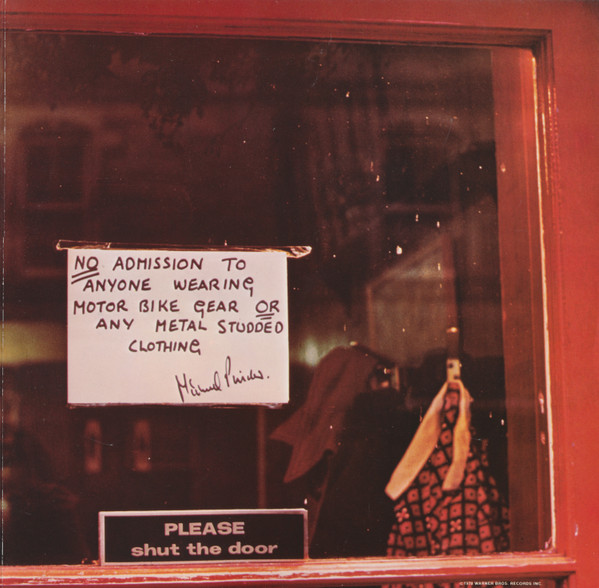 NO ADMISSION TO
ANYONE WEARING
MOTOR BIKE GEAR OR
ANY METAL STUDDED
CLOTHING
PLEASE
shut the door
WARNER BROS. RECORDS INC.